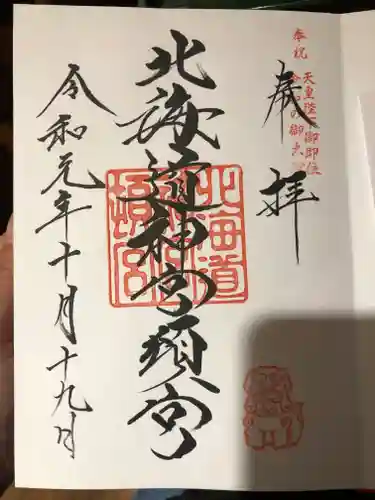 奉祝
天皇陛下御即位
令和の御大典
奉拝
北海道神宮頓宮
北海道
神宮
頓宮
令和元年十月十九日